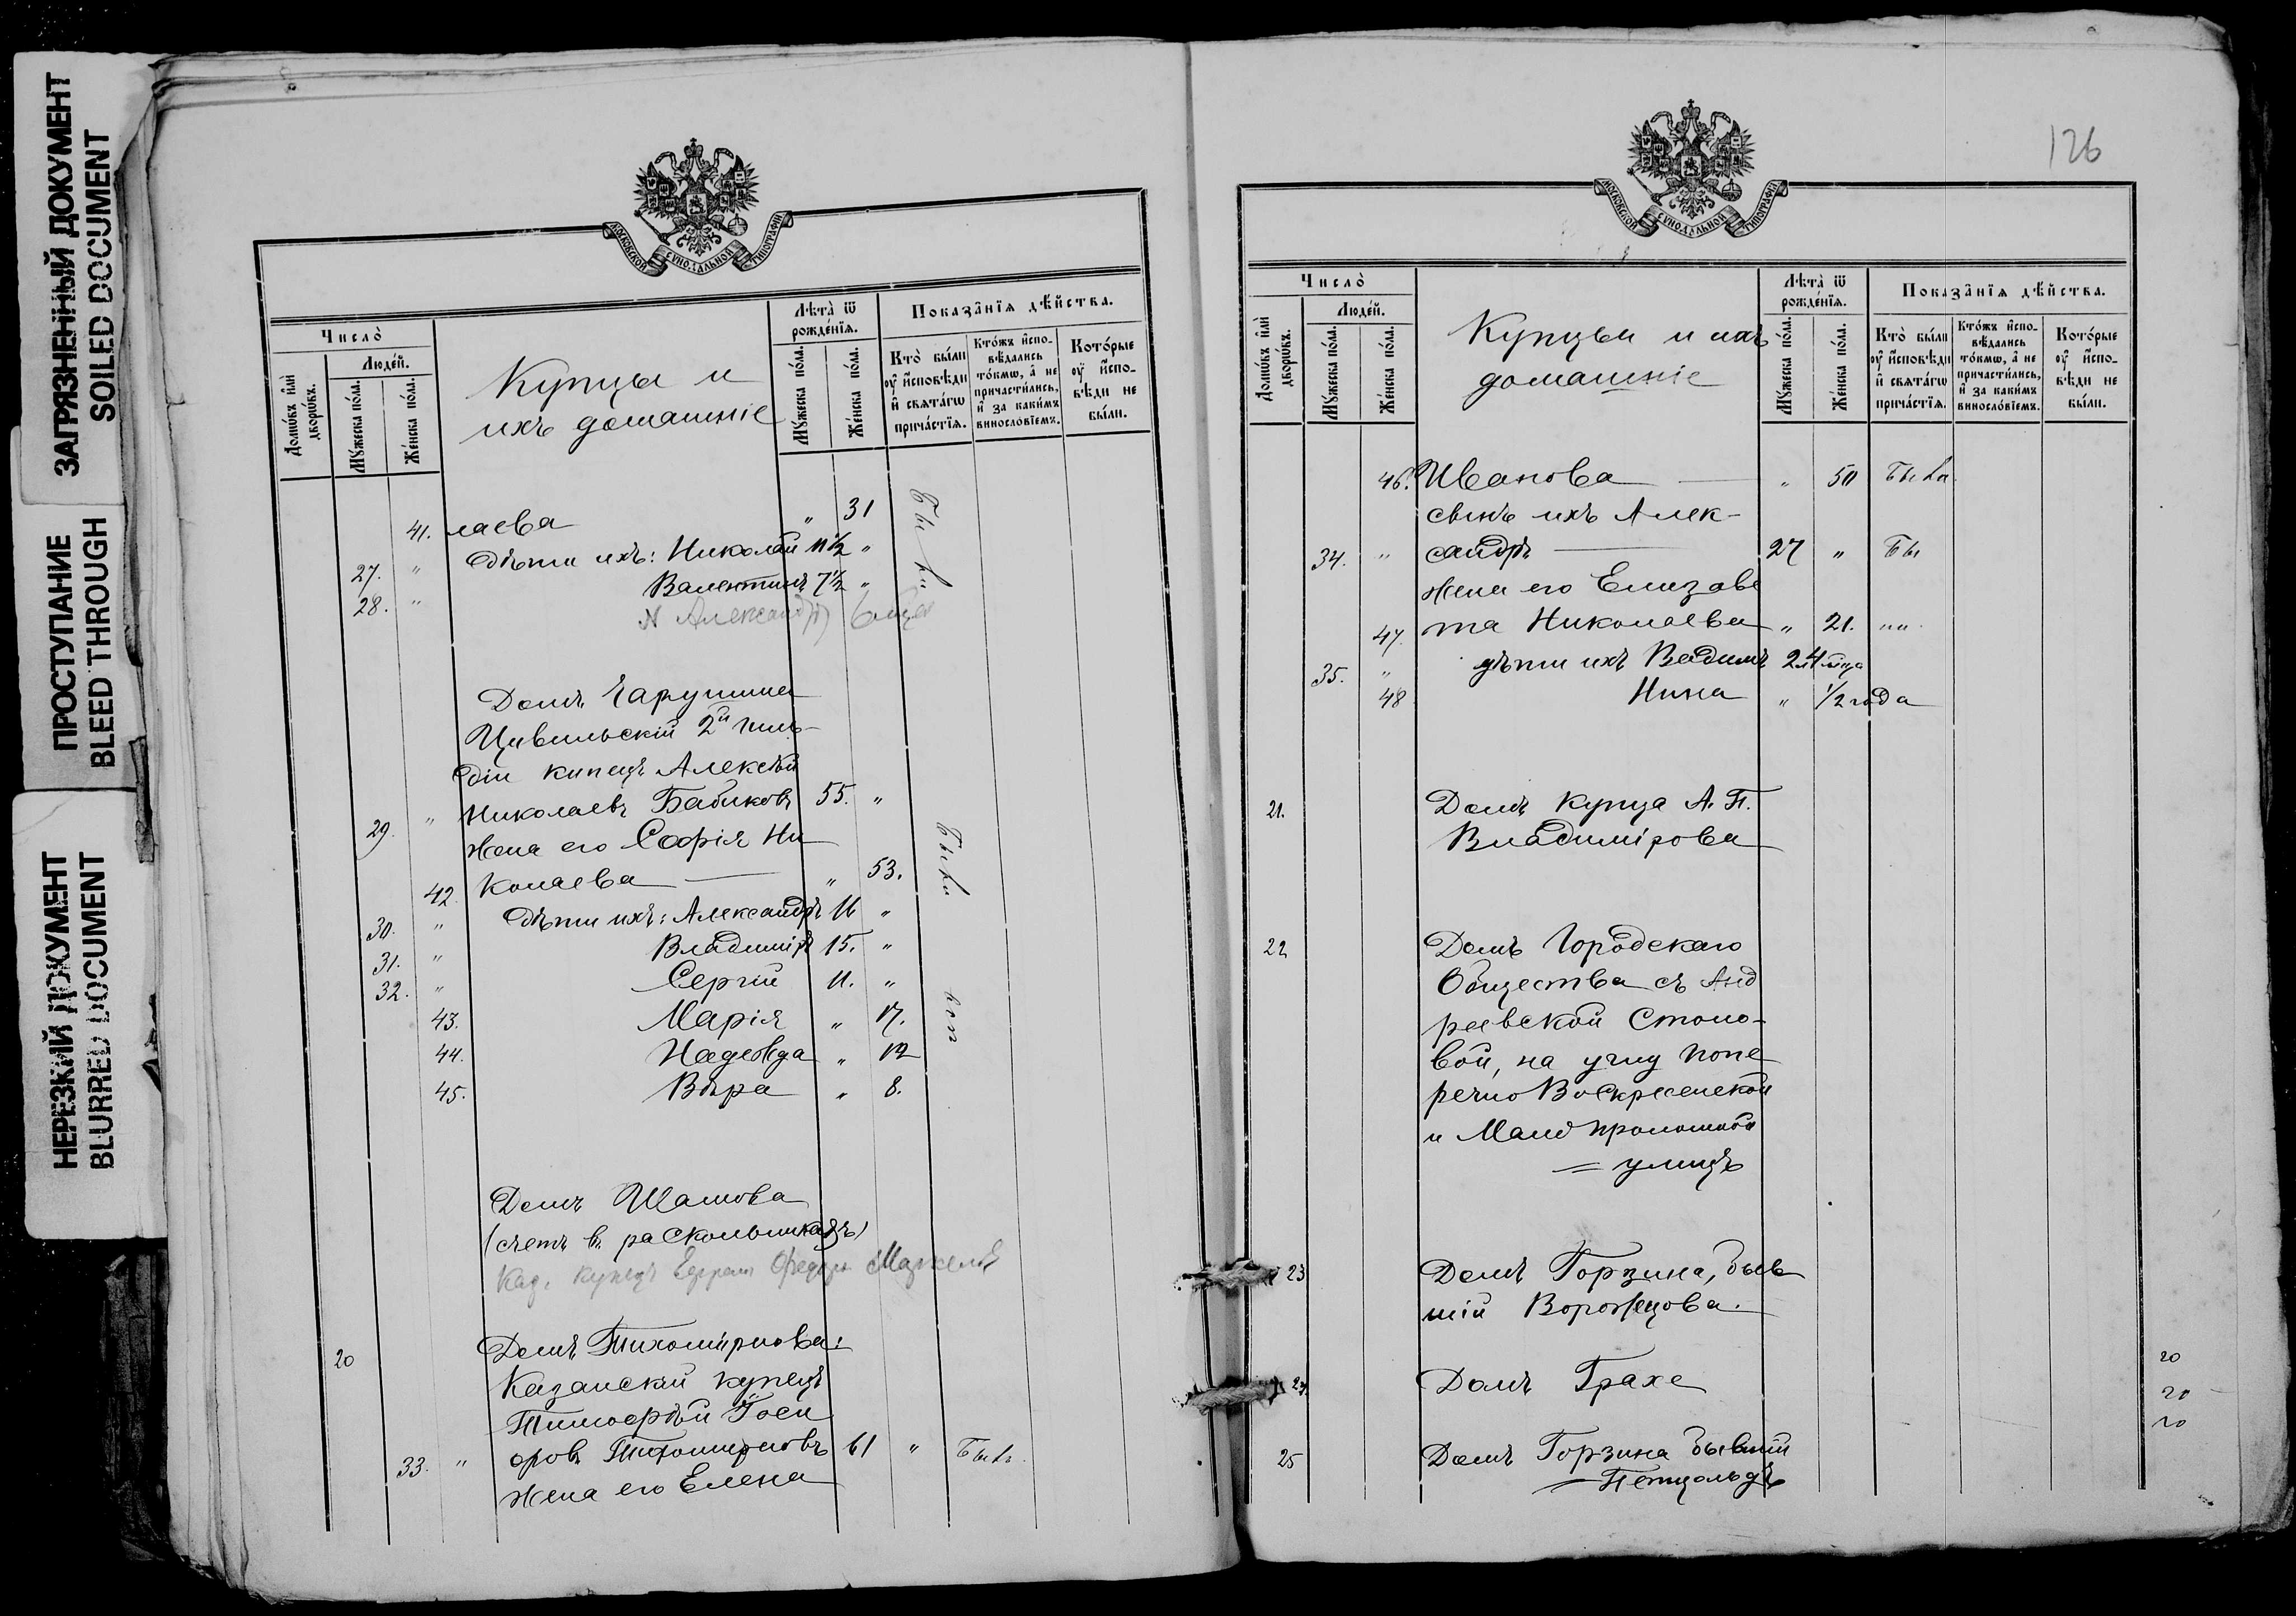 ЗАГРЯЗНЕННЫЙ ДОКУМЕНТ
SOILED DOCUMENT
ПРОСТУПАНИЕ
BLEED THROUGH
НЕРЕЗКИЙ ДОКУМЕНТ
BLURRED DOCUMENT
МОСКОВСКОЙ СУНОДАЛЬНОЙ ТИПОГРАФІИ
Число̀
Людей.
Домѡвъ и҆лѝ дворѡвъ.
Мꙋжеска по́ла.
Же́нска по́ла.
Купцы и
ихъ домашніе
Лѣта̀ ѿ рожде́нїѧ.
Мꙋжеска по́ла.
Же́нска по́ла.
Показа̑нїѧ дѣ́йства.
Кто̀ бы́ли ᲂу҆ и҆сповѣди и҆ свѧта́гѡ прича́стїѧ.
Кто́жъ и҆спо-вѣдались то́кмѡ, а҆ не причасти́лись, и҆ за каки́мъ винослѡ́вїемъ.
Кото́рые ᲂу҆ и҆спо-вѣди не бы́ли.
41. лаева " 31 Были
27. " дѣти ихъ: Николай 11½ "
28. " Валентинъ 7½ "
Александръ
Домъ Чарушина
Цивильскій 2й гиль-
діи купецъ Алексѣй
29. " Николаевъ Бабиковъ 55. "
жена его Софія Ни
42. колаева " 53. Были
30. " дѣти ихъ: Александръ 16 "
31. " Владиміръ 15. "
32. " Сергій 11. "
43. Марія " 17.
44. Надежда " 12
45. Вѣра " 8.
Домъ Шамова
(счетъ въ раскольникахъ)
Каз. купецъ Ефремъ Федоръ
20 Домъ Тихомірнова:
Казанскій купецъ
Тимофѣй
33. " Тихомирновъ 61 " Былъ.
жена его Елена
126
МОСКОВСКОЙ СУНОДАЛЬНОЙ ТИПОГРАФІИ
Число̀
Людей.
Домѡвъ и҆лѝ дворѡвъ.
Мꙋжеска по́ла.
Же́нска по́ла.
Купцы и ихъ
домашніе
Лѣта̀ ѿ рожде́нїѧ.
Мꙋжеска по́ла.
Же́нска по́ла.
Показа̑нїѧ дѣ́йства.
Кто̀ бы́ли ᲂу҆ и҆сповѣди и҆ свѧта́гѡ прича́стїѧ.
Кто́жъ и҆спо-вѣдались то́кмѡ, а҆ не причасти́лись, и҆ за каки́мъ винослѡ́вїемъ.
Кото́рые ᲂу҆ и҆спо-вѣди не бы́ли.
46. Иванова " 50 Была
сынъ ихъ Алек-
34. " сандръ 27 " Бы
жена его Елизаве
47. та Николаева " 21. " "
35. " дѣти ихъ Вадимъ 2 л 4 мца
48 Нина " ½ года
21. Домъ купца А. П.
Владимірова
22 Домъ Городскаго
Общества съ Анд
реевской Столо-
вой, на углу попе
речно Воскресенской
и Мало проломной
= улицъ
23 Домъ Горзина, быв
шій Воронцова.
24. Домъ Грахе
25 Домъ Горзина бывшій
= Петцольдъ
20
20
20